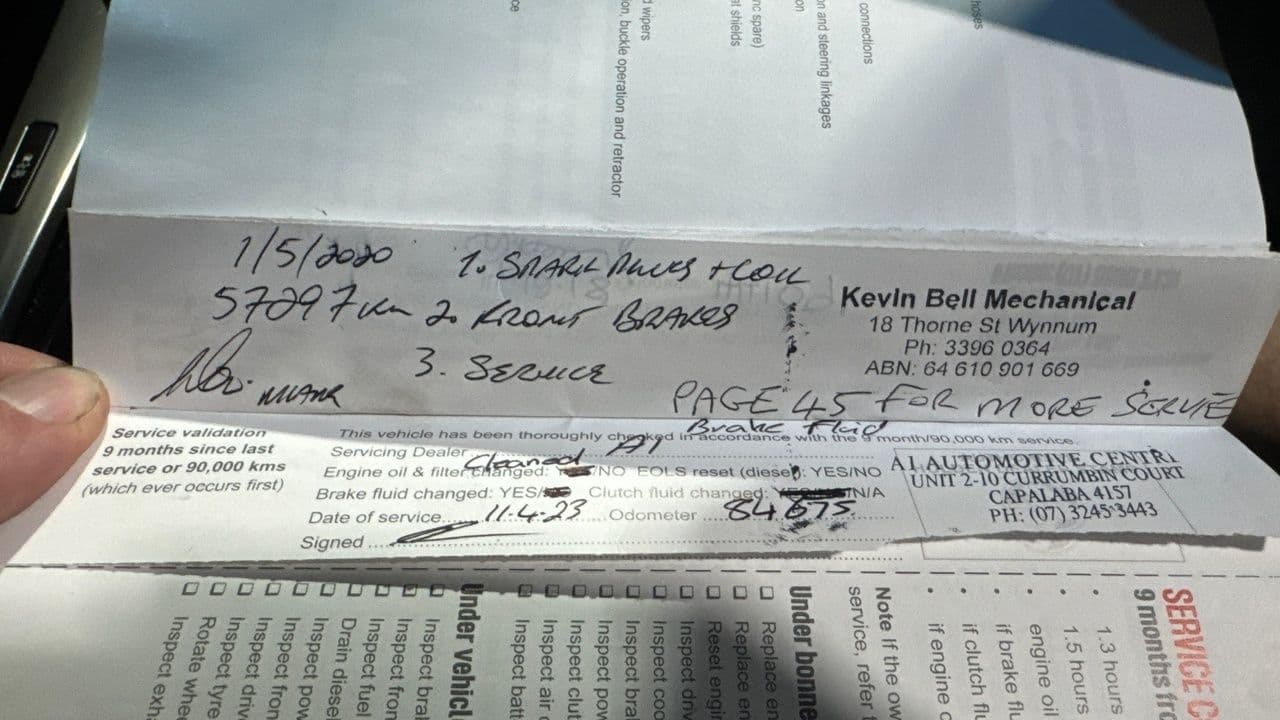 connections
hoses
on and steering linkages
on
nc spare)
at shields
d wipers
on, buckle operation and retractor
ce
1/5/2020 1. SPARK PLUGS + COIL
57297 km 2. FRONT BRAKES
3. SERVICE
Kevin Bell Mechanical
18 Thorne St Wynnum
Ph: 3396 0364
ABN: 64 610 901 669
PAGE 45 FOR MORE SERVIE
Service validation
9 months since last
service or 90,000 kms
(which ever occurs first)
Brake Fluid
This vehicle has been thoroughly checked in accordance with the 9 month/90,000 km service.
Servicing Dealer A1
Cleaned
Engine oil & filter changed: /NO EOLS reset (diesel): YES/NO
Brake fluid changed: YES/ Clutch fluid changed: /N/A
Date of service 11.4.23 Odometer 84675
Signed
A1 AUTOMOTIVE CENTR
UNIT 2-10 CURRUMBIN COURT
CAPALABA 4157
PH: (07) 3245 3443
SERVICE C
9 months fr
• 1.3 hours
• 1.5 hours
engine oil
• if brake flu
• if clutch flu
• if engine o
Note If the ow
service, refer t
Under bonne
Replace en
Replace en
Reset engi
Inspect driv
Inspect coo
Inspect bra
Inspect pow
Inspect clut
Inspect air c
Inspect batt
Under vehicl
Inspect bra
Inspect fron
Inspect fuel
Drain diese
Inspect pow
Inspect fron
Inspect driv
Inspect tyre
Rotate whee
Inspect exh